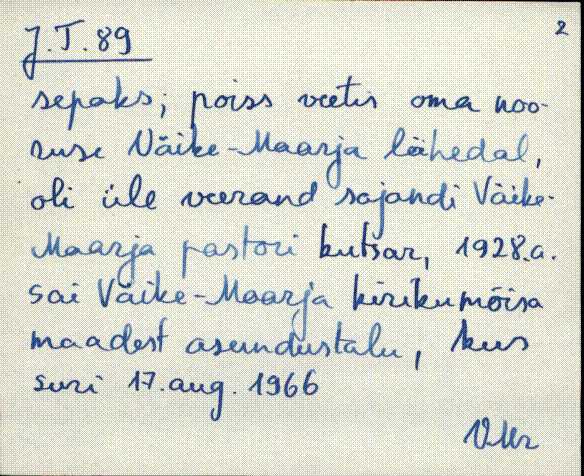 J.T. 89
2
sepaks; poiss veetis oma noo-
ruse Väike-Maarja lähedal,
oli üle veerand sajandi Väike-
Maarja pastori kutsar, 1928.a.
sai Väike-Maarja kirikumõisa
maadest asundustalu, kus
suri 17. aug. 1966